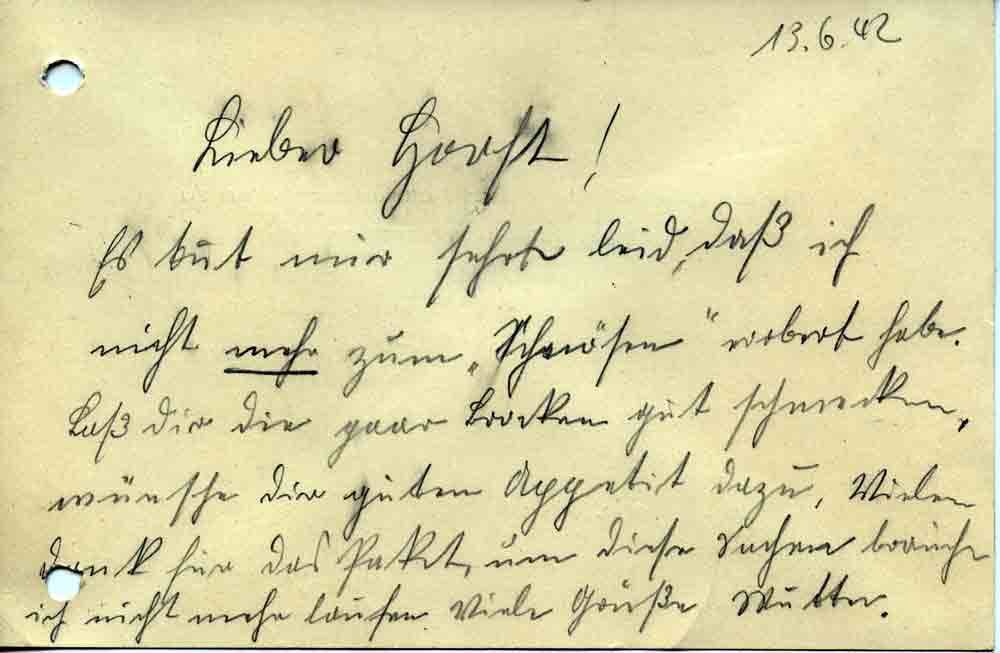 13.6.42
Lieber Horst!
Es tut mir sehr leid, daß ich
nicht mehr zum erobert habe.
Laß dir die paar Brocken gut schmecken,
wünsche dir guten Appetit dazu, Vielen
Dank für das Paket, um diese Sachen brauche
ich nicht mehr laufen. Viele Grüße Mutter.